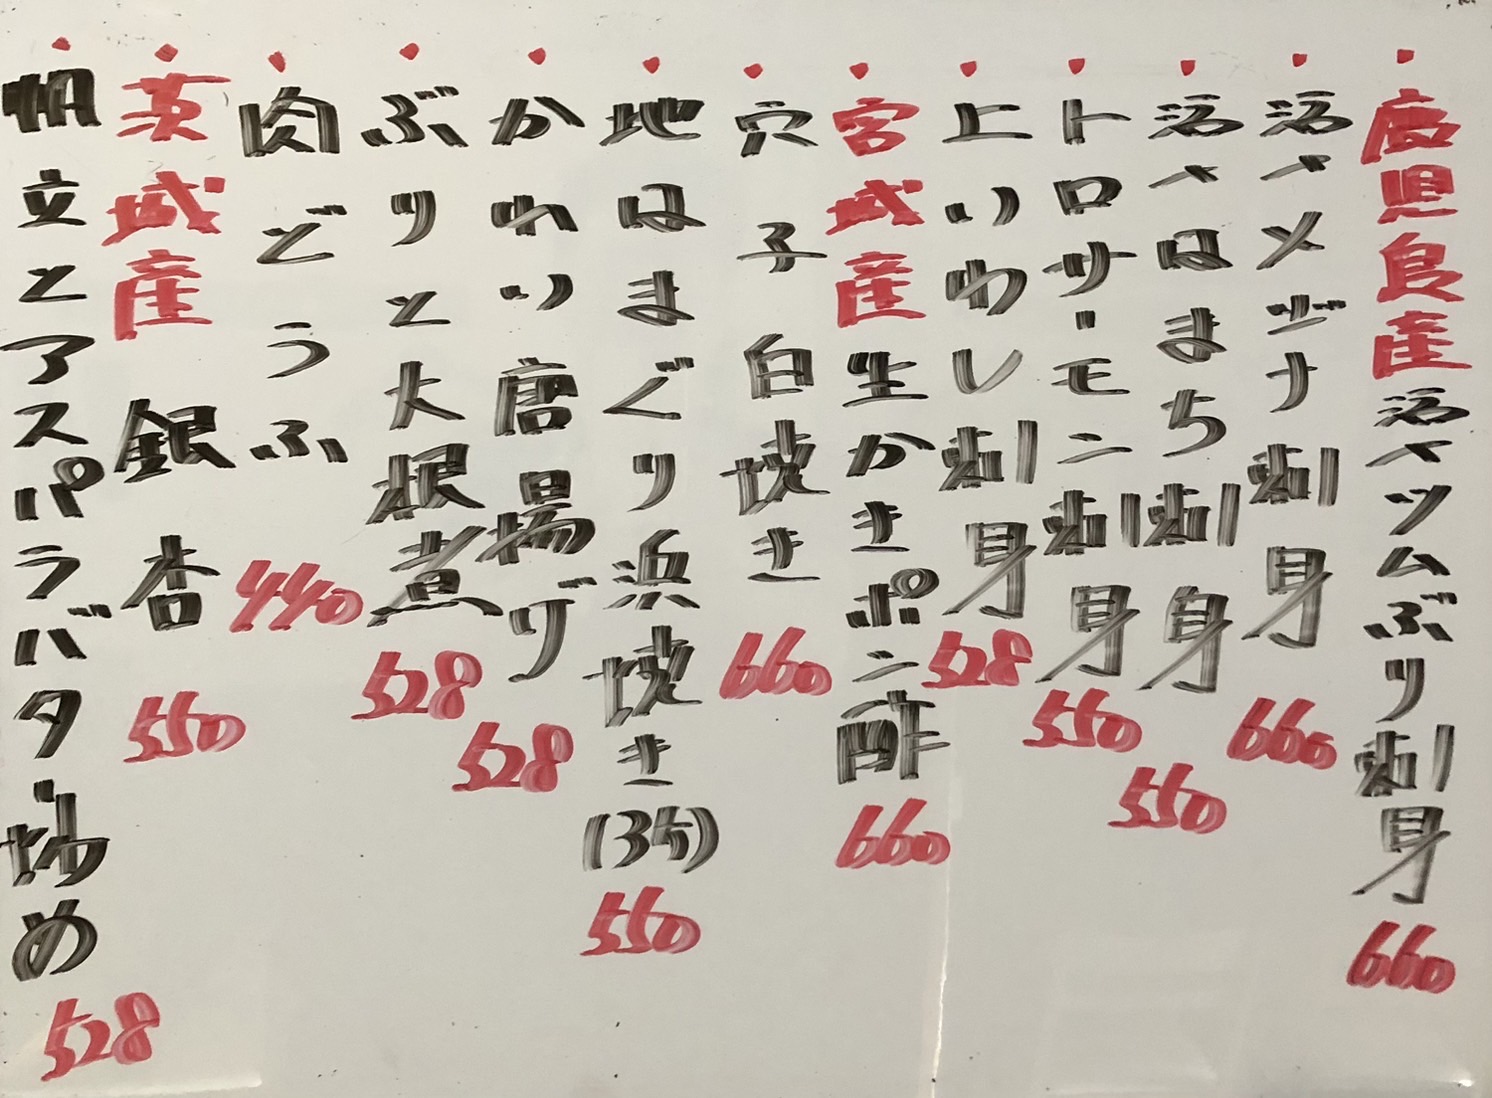 ・鹿児島産活〆ツムぶり刺身 660
・活〆メジナ刺身 660
・活〆はまち刺身 550
・トロサーモン刺身 550
・上いわし刺身 528
・宮城産生かきポン酢 660
・穴子白焼き 660
・地はまぐり浜焼き(3ケ) 550
・かれい唐揚げ 528
・ぶりと大根煮 528
・肉どうふ 440
・茨城産 銀杏 550
・帆立とアスパラバター炒め 528